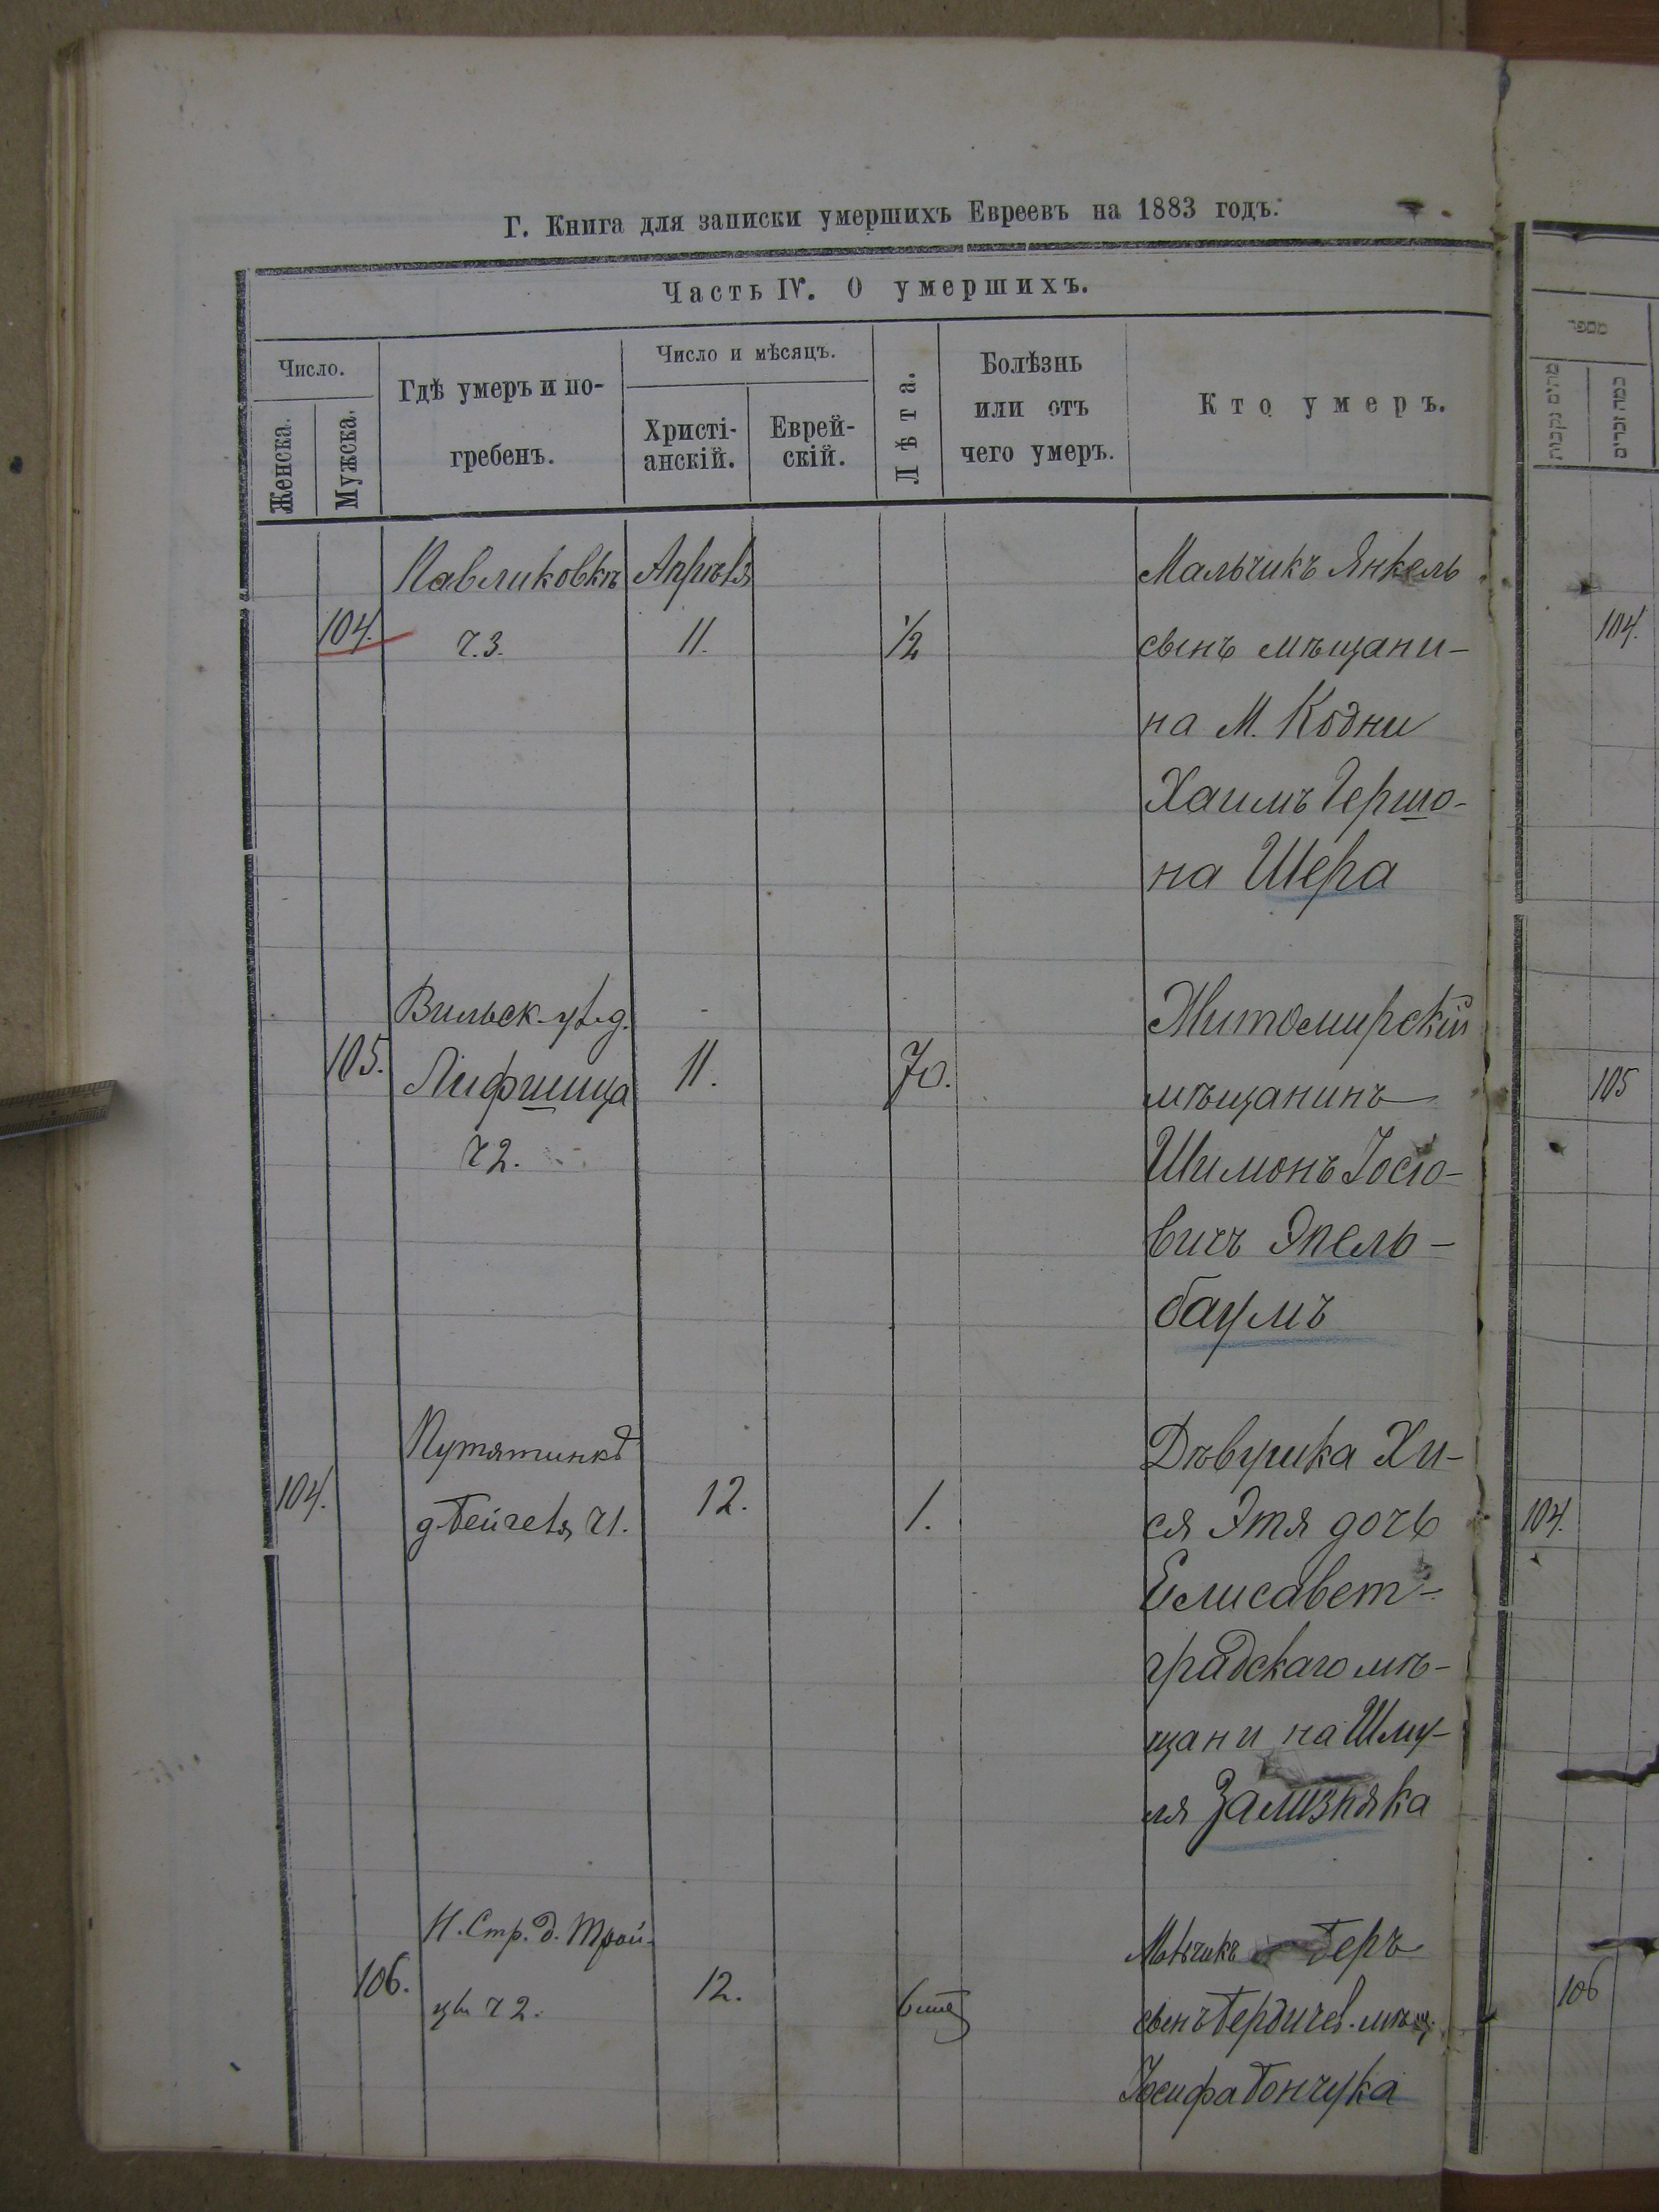 Г. Книга для записки умершихъ Евреевъ на 1883 годъ.
Часть IV. О умершихъ.
Число.
Женска.
Мужска.
Гдѣ умеръ и по-
гребенъ.
Число и мѣсяцъ.
Христі-
анскій.
Еврей-
скій.
Лѣта.
Болѣзнь
или отъ
чего умеръ.
Кто умеръ.
מספר
מהים נקבות
כמה זכרים
104.
Павликовкѣ
ч.3.
Апрѣля
11.
1/2
Мальчикъ Янкель
сынъ мѣщани-
на М. Кодни
Хаимъ Гершо-
на Шера
104.
105.
Вильск. ул. д.
Лифшица
ч2.
11.
70.
Житомирскій
мѣщанинъ
Шимонъ Іосіо-
вичъ Эпель-
баумъ
105
104.
Путятинкѣ
ч1.
12.
1.
Дѣвушка Хи-
ся Этя дочь
Елисавет-
градскаго мѣ-
щани на Шму-
ля Зализняка
104.
106.
Н. Стр. д. Трой-
ч2.
12.
Беръ
сынъ Бердичев. мѣщ.
Іосифа Бончука
106